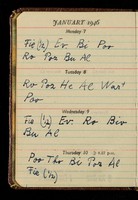 JANUARY 1946
Monday 7
Fie (½) Ev. Bi Poo
Ro Pom Bu Al
Tuesday 8
Ro Pom He Al Want
Poo
Wednesday 9
Fie (½) Ev. Ro Biv
Bu Al
Thursday 10
Poo Tho Bi Pom Al
Fie (½)